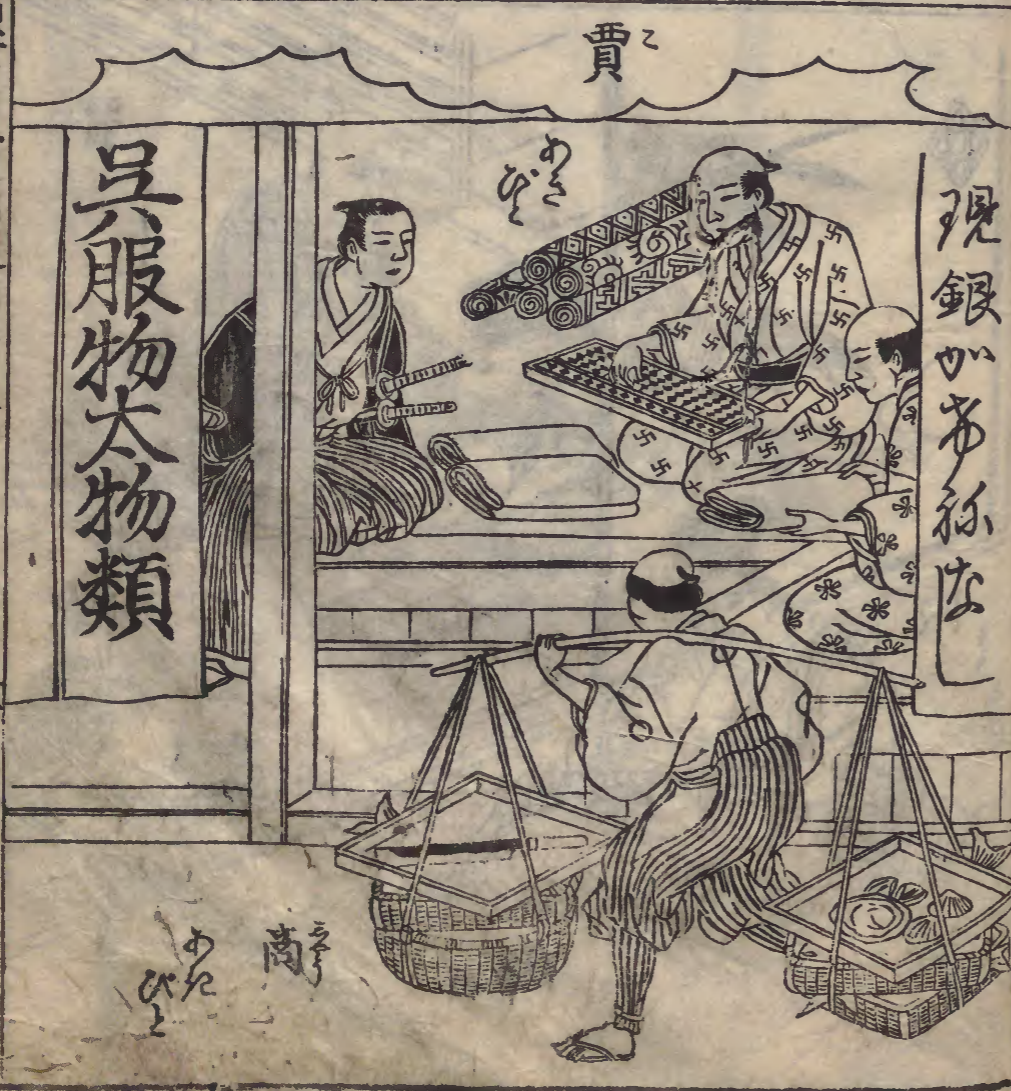 賈こ
現銀かけねなし
あき
びと
呉服物太物類
商しやう
あき
びと